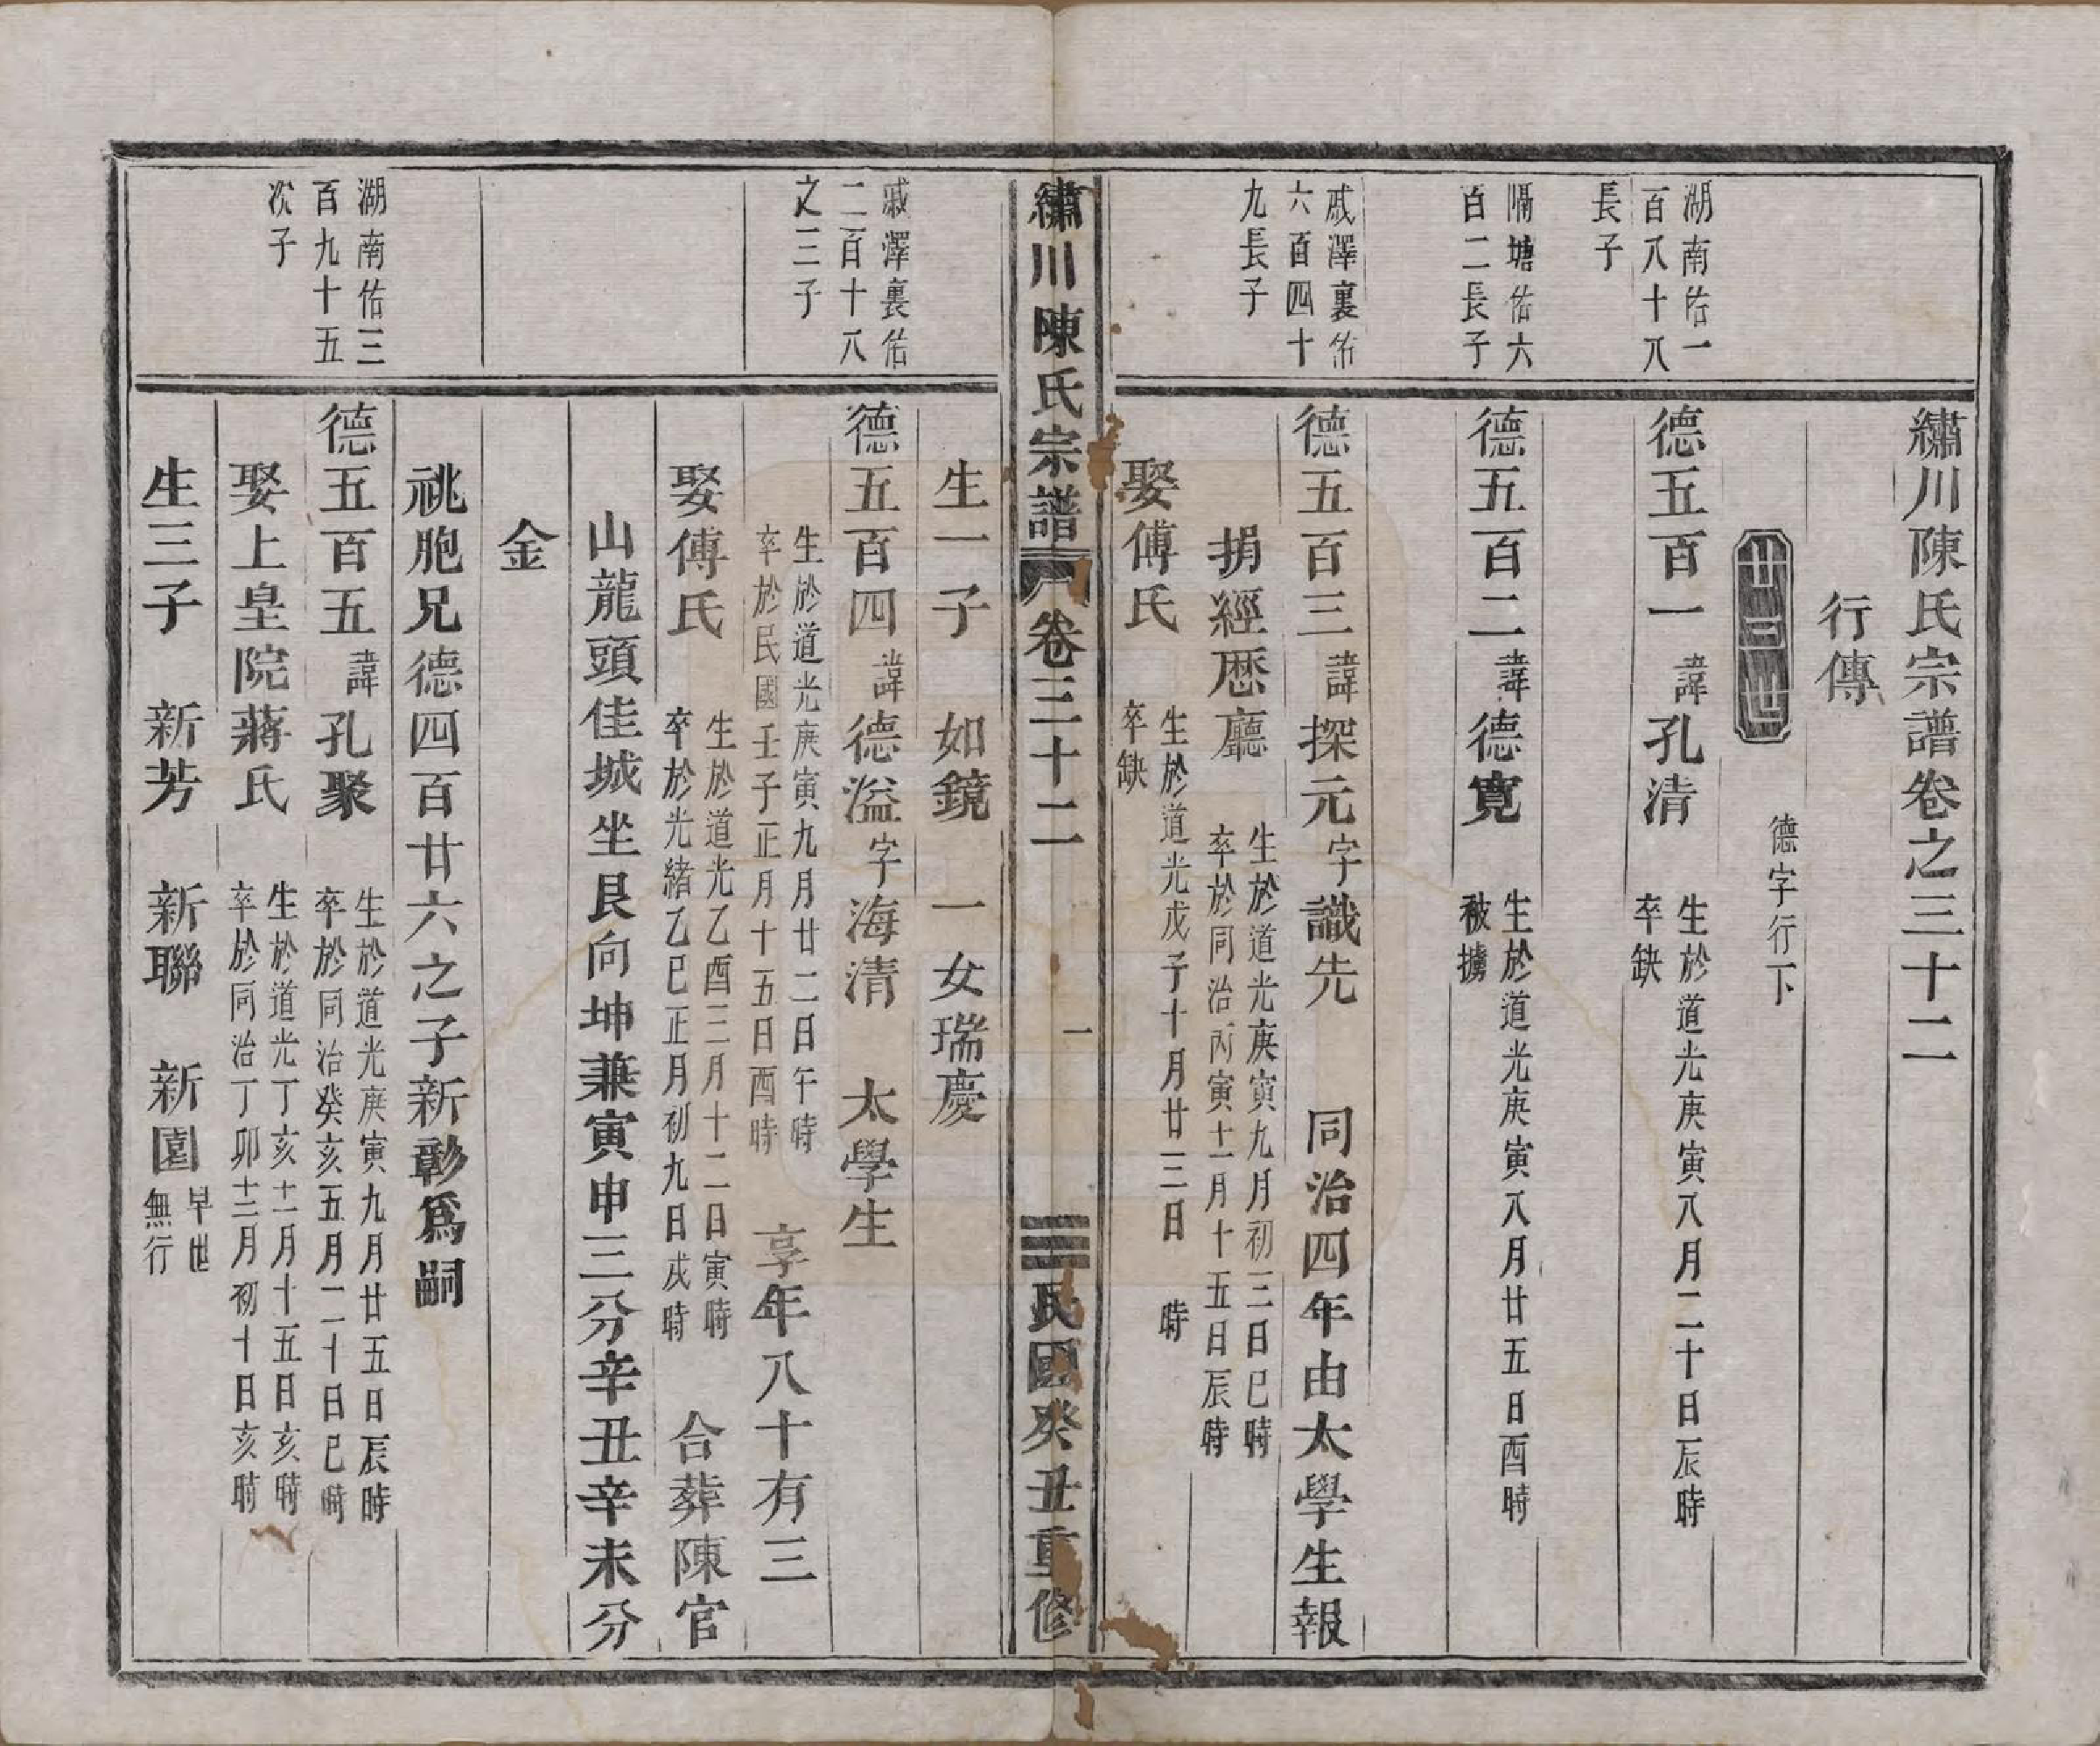 繡川陳氏宗譜卷之三十二
行傳
卅三世
德字行下
湖南佑一
百八十八
長子
德五百一諱孔清
生於道光庚寅八月二十日辰時
卒缺
隔塘佑六
百二長子
德五百二諱德寬
生於道光庚寅八月廿五日酉時
被擄
戚澤裏佑
六百四十
九長子
德五百三諱探元字識先 同治四年由太學生報
捐經歷廳
生於道光庚寅九月初三日巳時
卒於同治丙寅十一月十五日辰時
娶傅氏
生於道光戊子十月廿三日 時
卒缺
繡川陳氏宗譜 卷三十二 一 民國癸丑重修
生一子 如鏡 一女瑞慶
戚澤裏佑
二百十八
之三子
德五百四諱德溢字海清 太學生
生於道光庚寅九月廿二日午時
卒於民國壬子正月十五日酉時
享年八十有三
娶傅氏
生於道光乙酉三月十二日寅時
卒於光緒乙巳正月初九日戌時
合葬陳官
山龍頭佳城坐艮向坤兼寅申三分辛丑辛未分
金
祧胞兄德四百廿六之子新彰爲嗣
湖南佑三
百九十五
次子
德五百五諱孔聚
生於道光庚寅九月廿五日辰時
卒於同治癸亥五月二十日巳時
娶上皇院蔣氏
生於道光丁亥十一月十五日亥時
卒於同治丁卯十二月初十日亥時
生三子 新芳 新聯 新園
早世
無行